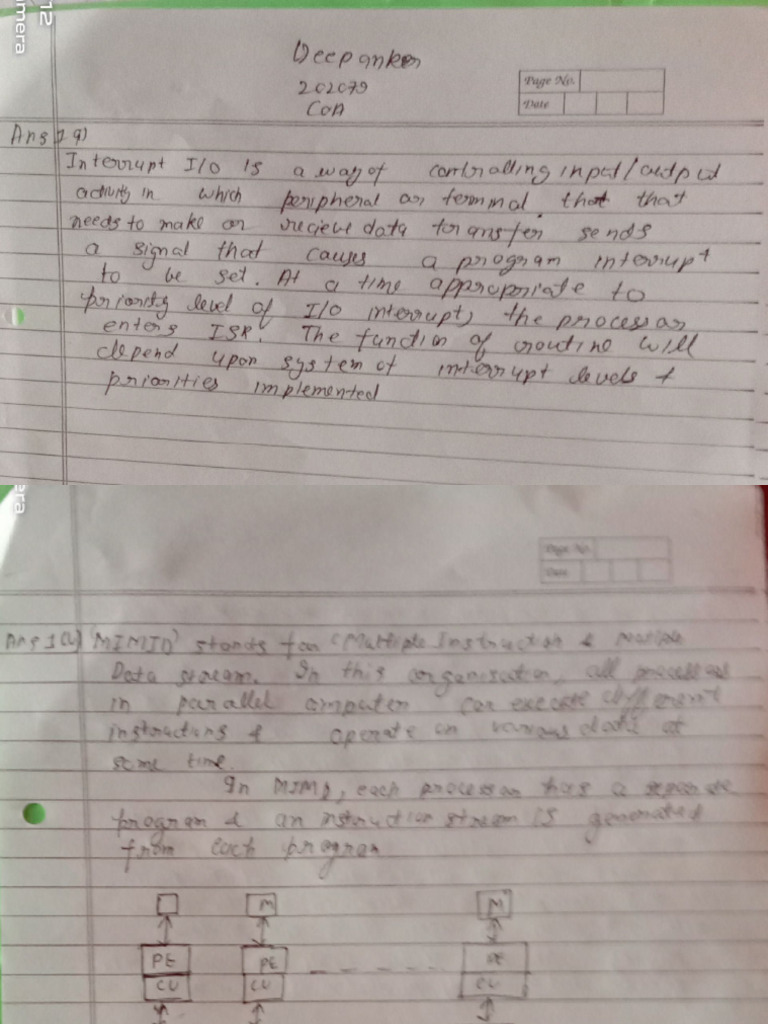 12
mera
Deepanker
202079
COA
Page No.
Date
Ans 1 a)
Interrupt I/O is a way of controlling input/output
activity in which peripheral or terminal that that
needs to make or recieve data transfer sends
a signal that causes a program interrupt
to be set. At a time appropriate to
priority level of I/O interrupt, the processor
enters ISR. The function of routine will
depend upon system of interrupt levels &
priorities implemented
era
Page No.
Date
Ans 1 'MIMD' stands for 'Multiple Instruction & Multiple
Data stream. In this organisation, all processors
in parallel computer can execute different
instructions & operate on various data at
same time.
In MIMD, each processor has a separate
program & an instruction stream is generated
from each program
M M
PE PE PE
CU CU CU